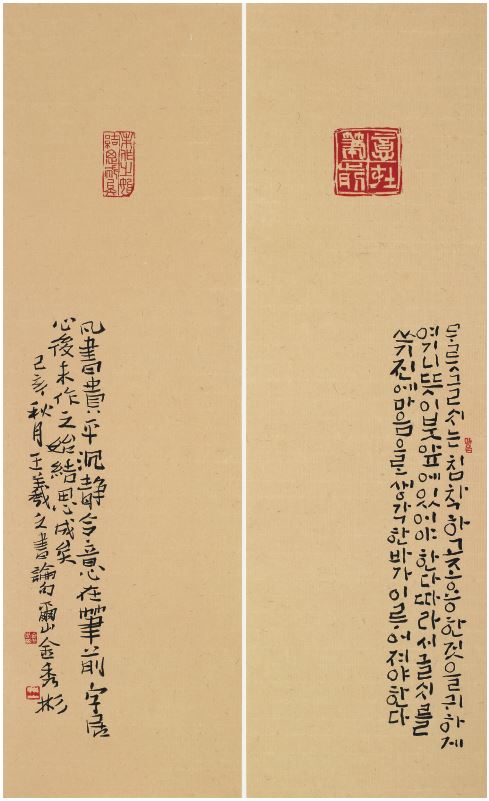 意在
筆前
무릇글씨는침착하고조용한것을귀하게
여기니뜻이붓앞에있어야한다따라서글씨를
쓰기전에마음을생각한바가이루어져야한다
未作之始
結思成矣
凡書貴平沉静令意在筆前字居
心後未作之始結思成矣
己亥秋月王羲之書論句爾山金秀彬